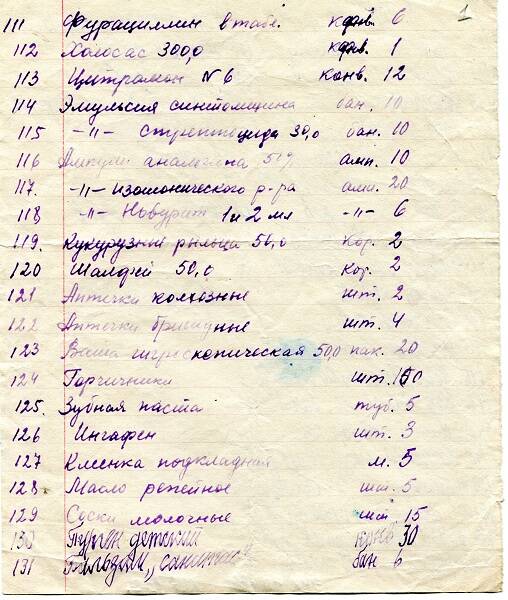 1
111 Фурациллин в табл. конв. 6
112 Холосас 300,0 конв. 1
113 Цитрамон N 6 конв. 12
114 Эмульсия синтомицина бан. 10
115 -"- стрептоцида 30,0 бан. 10
116 Ампулы анальгина 50% амп. 10
117. -"- изотонического р-ра амп. 20
118 -"- Новурит 1 и 2 мл -"- 6
119. Кукурузные рыльца 50,0 кор. 2
120 Шалфей 50,0 кор. 2
121 Аптечки колхозные шт. 2
122 Аптечки бригадные шт. 4
123 Вата гигроскопическая 50,0 пак. 20
124 Горчичники шт. 100
125. Зубная паста туб. 5
126 Ингафен шт. 3
127 Клеенка подкладная м. 5
128 Масло репейное шт. 5
129 Соски молочные шт 15
130 Пурген детский конв 30
131 Бальзам „санитас" бан 6